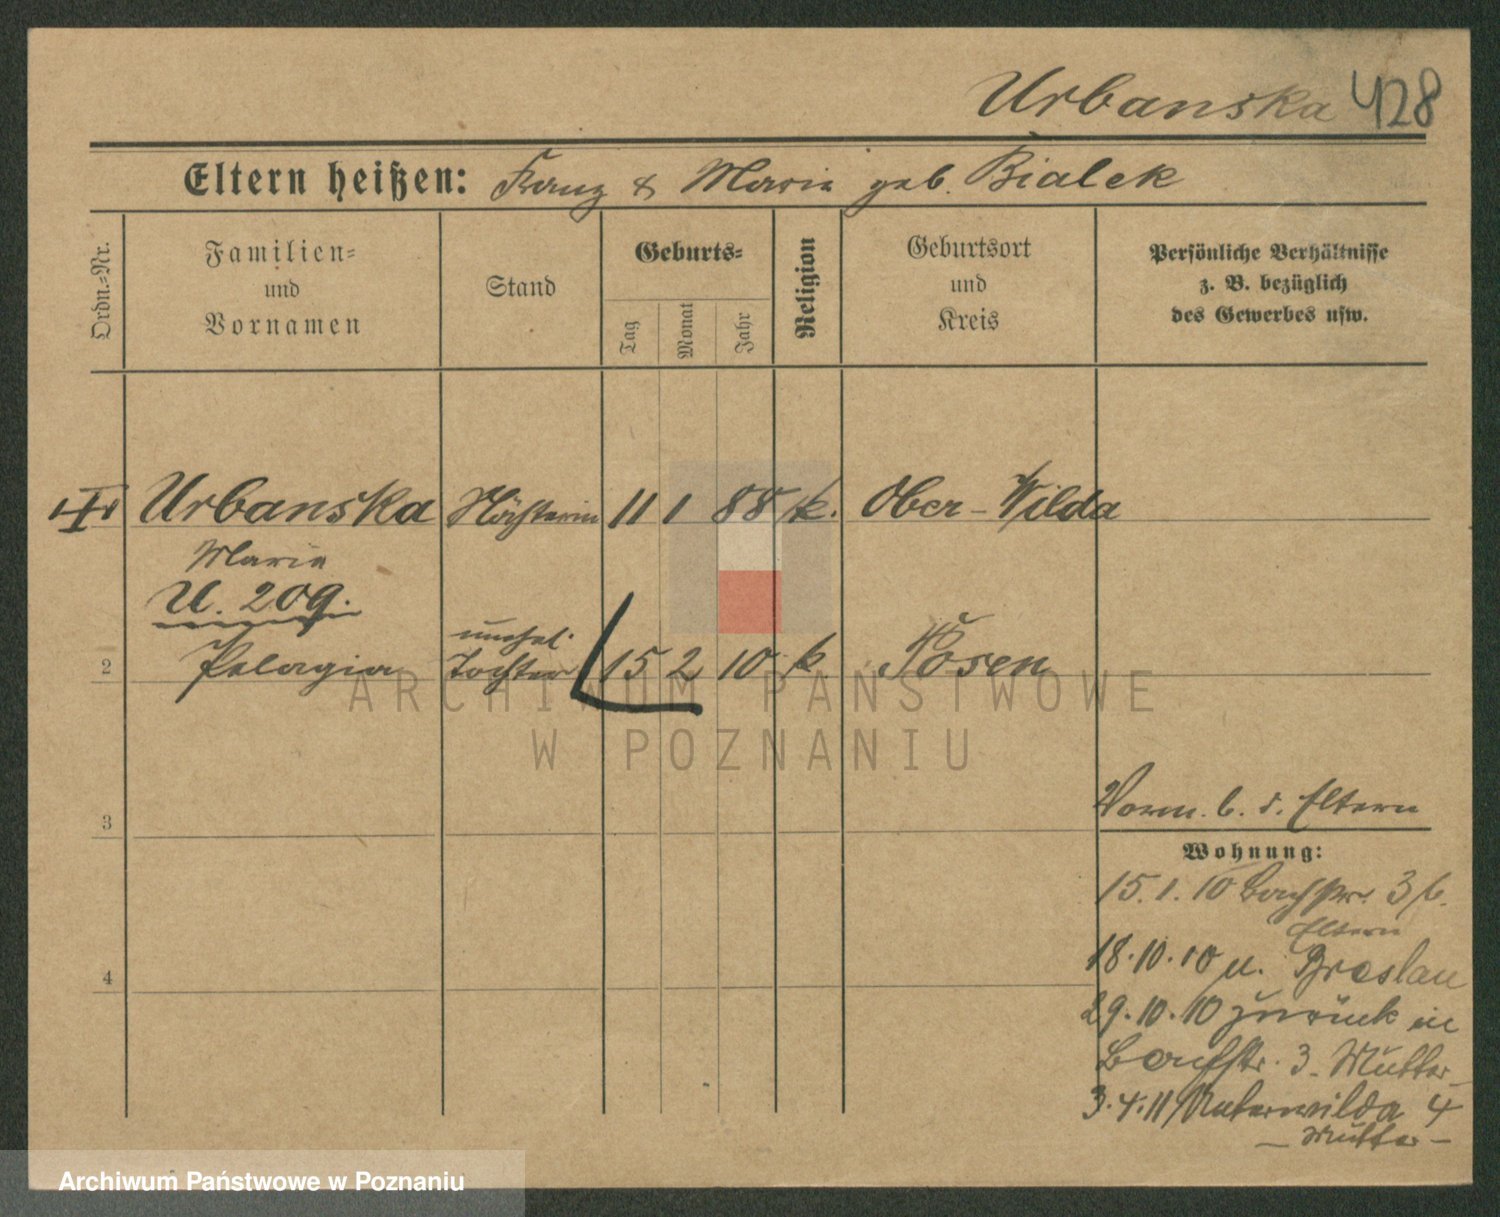 Urbanska 428
Eltern heißen: Franz & Maria geb. Bialek
Ordn.-Nr.
Familien-
und
Vornamen
Stand
Geburts-
Tag
Monat
Jahr
Religion
Geburtsort
und
Kreis
Persönliche Verhältnisse
z. B. bezüglich
des Gewerbes usw.
Urbanska Nähterin 11 1 88 k. Ober-Wilda
Maria
U. 209.
unehel.
2 Pelagia Tochter 15 2 10 k Posen
ARCHIWUM PAŃSTWOWE
W POZNANIU
Vorm. b. d. Eltern
3
Wohnung:
15.1.10 Bachstr. 3 b.
Eltern
18.10.10 n. Breslau
4
29.10.10 zurück in
Bachstr. 3 - Mutter -
3.4.11 Unterwilda 4
- Mutter -
Archiwum Państwowe w Poznaniu